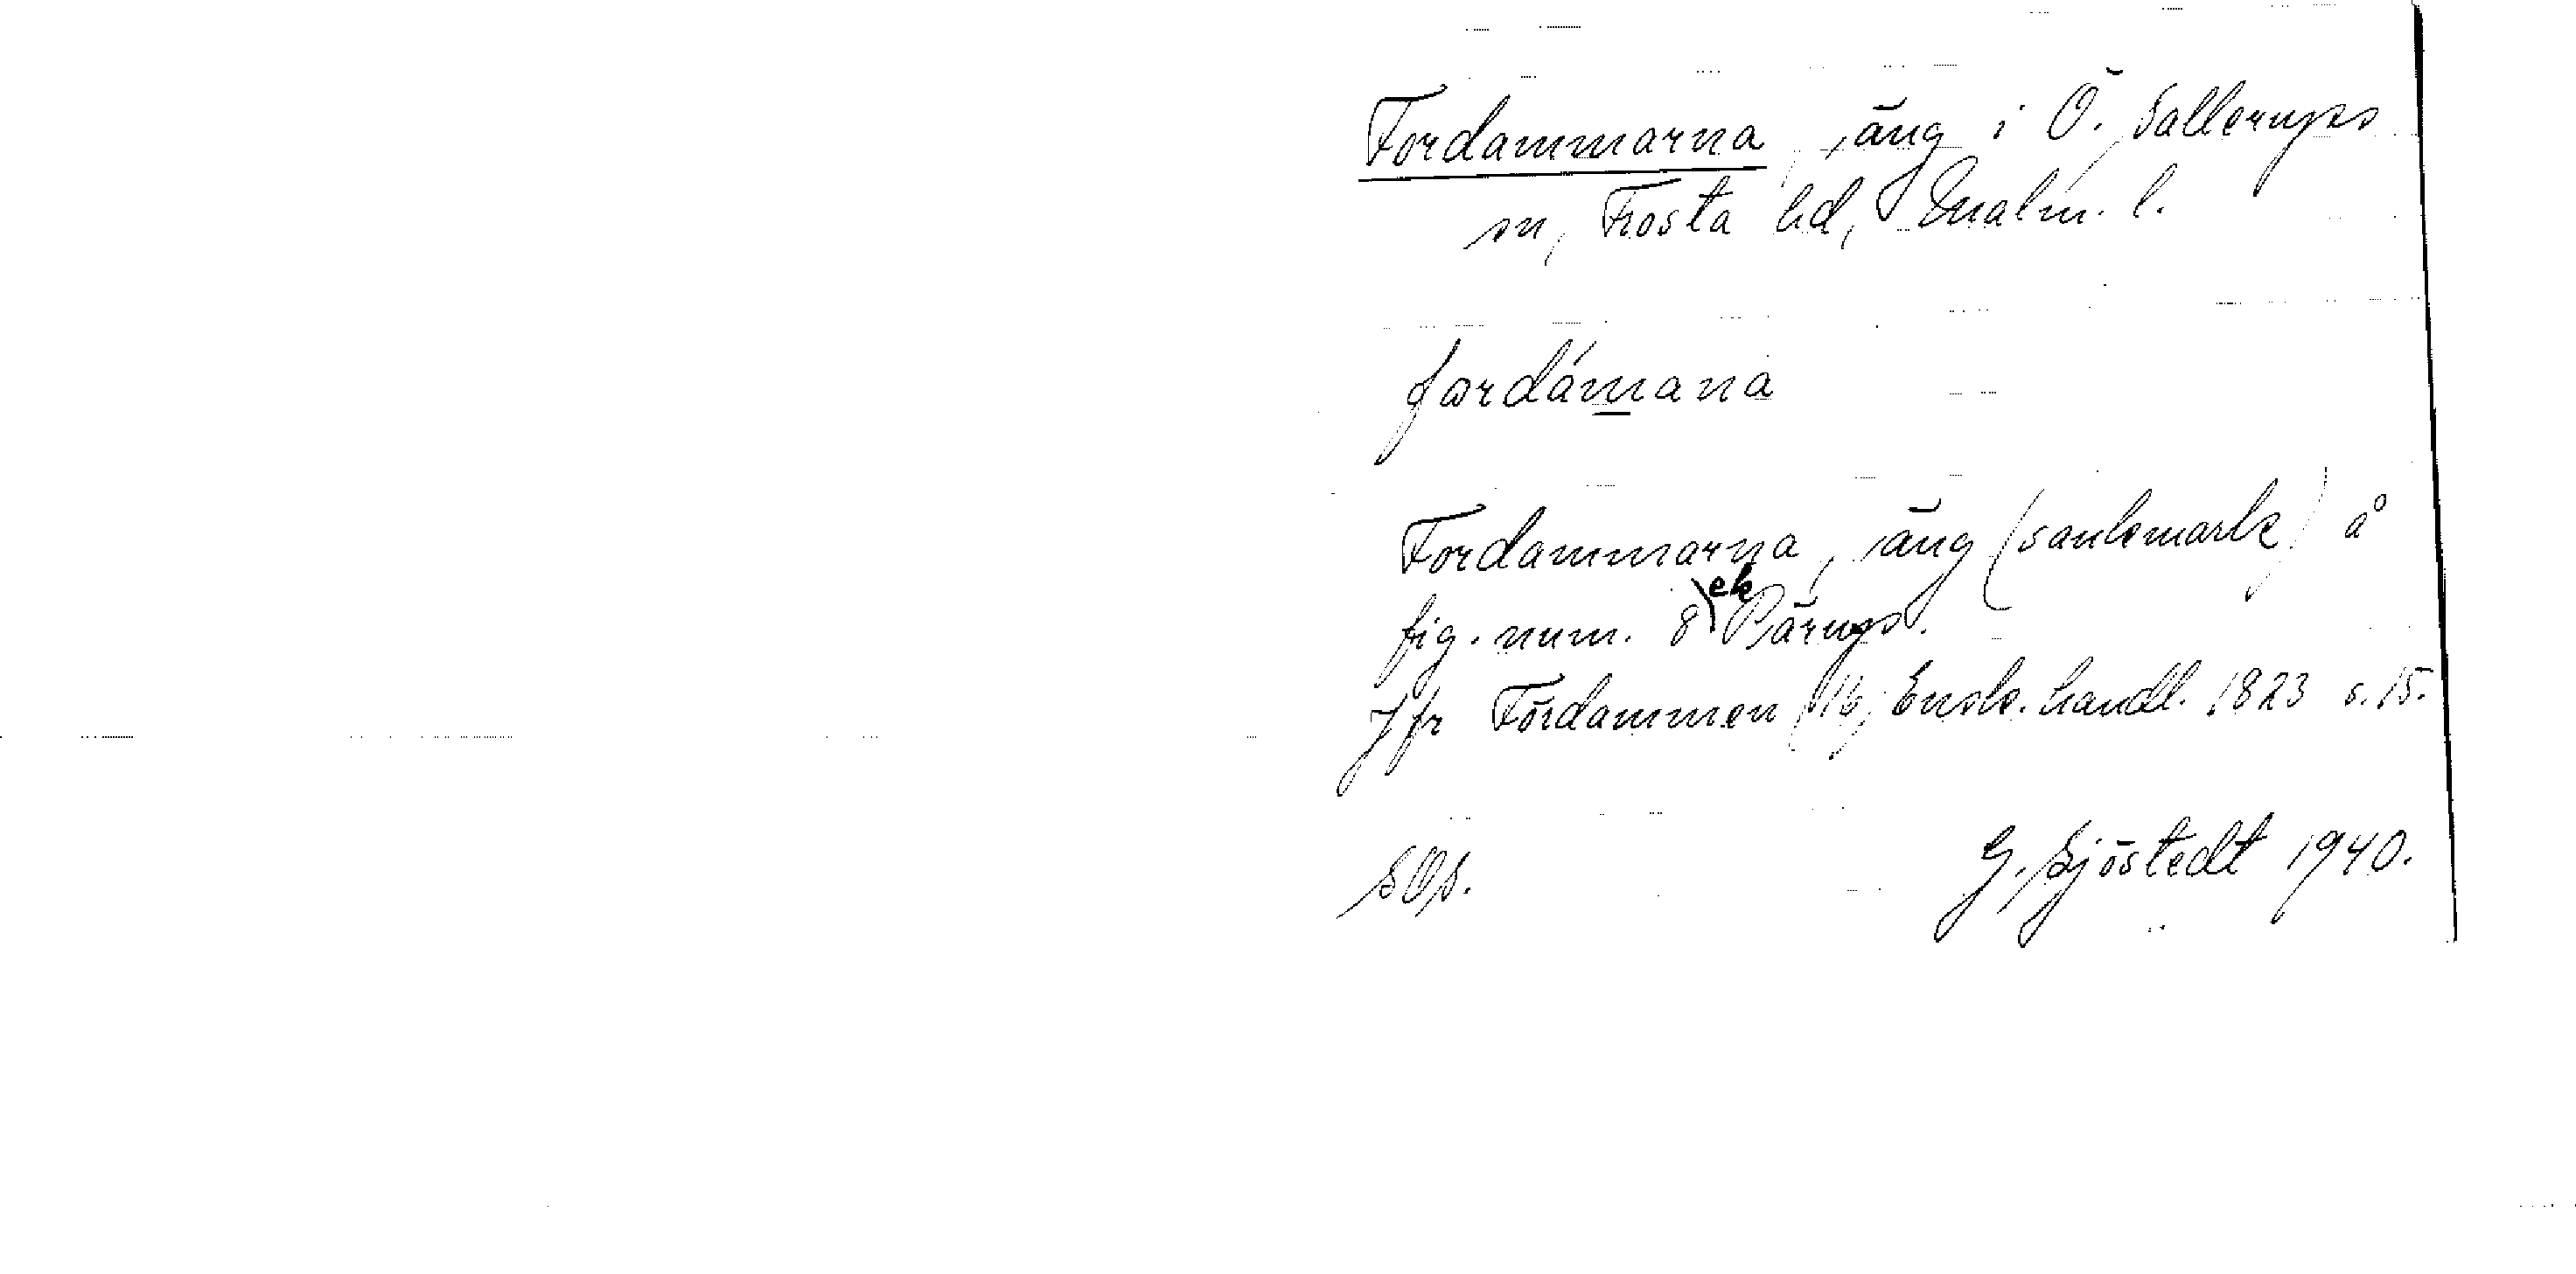 Fordammarna, äng i Ö. Sallerups
sn, Frosta hd, Malm. l.
fordám̲ana
Fordammarna, äng (sankmark) å
fig. num. 8 ek Pärups.
Jfr Fördammen Ensk. handl. 1823 s. 15.
SOs.
G. Sjöstedt 1940.